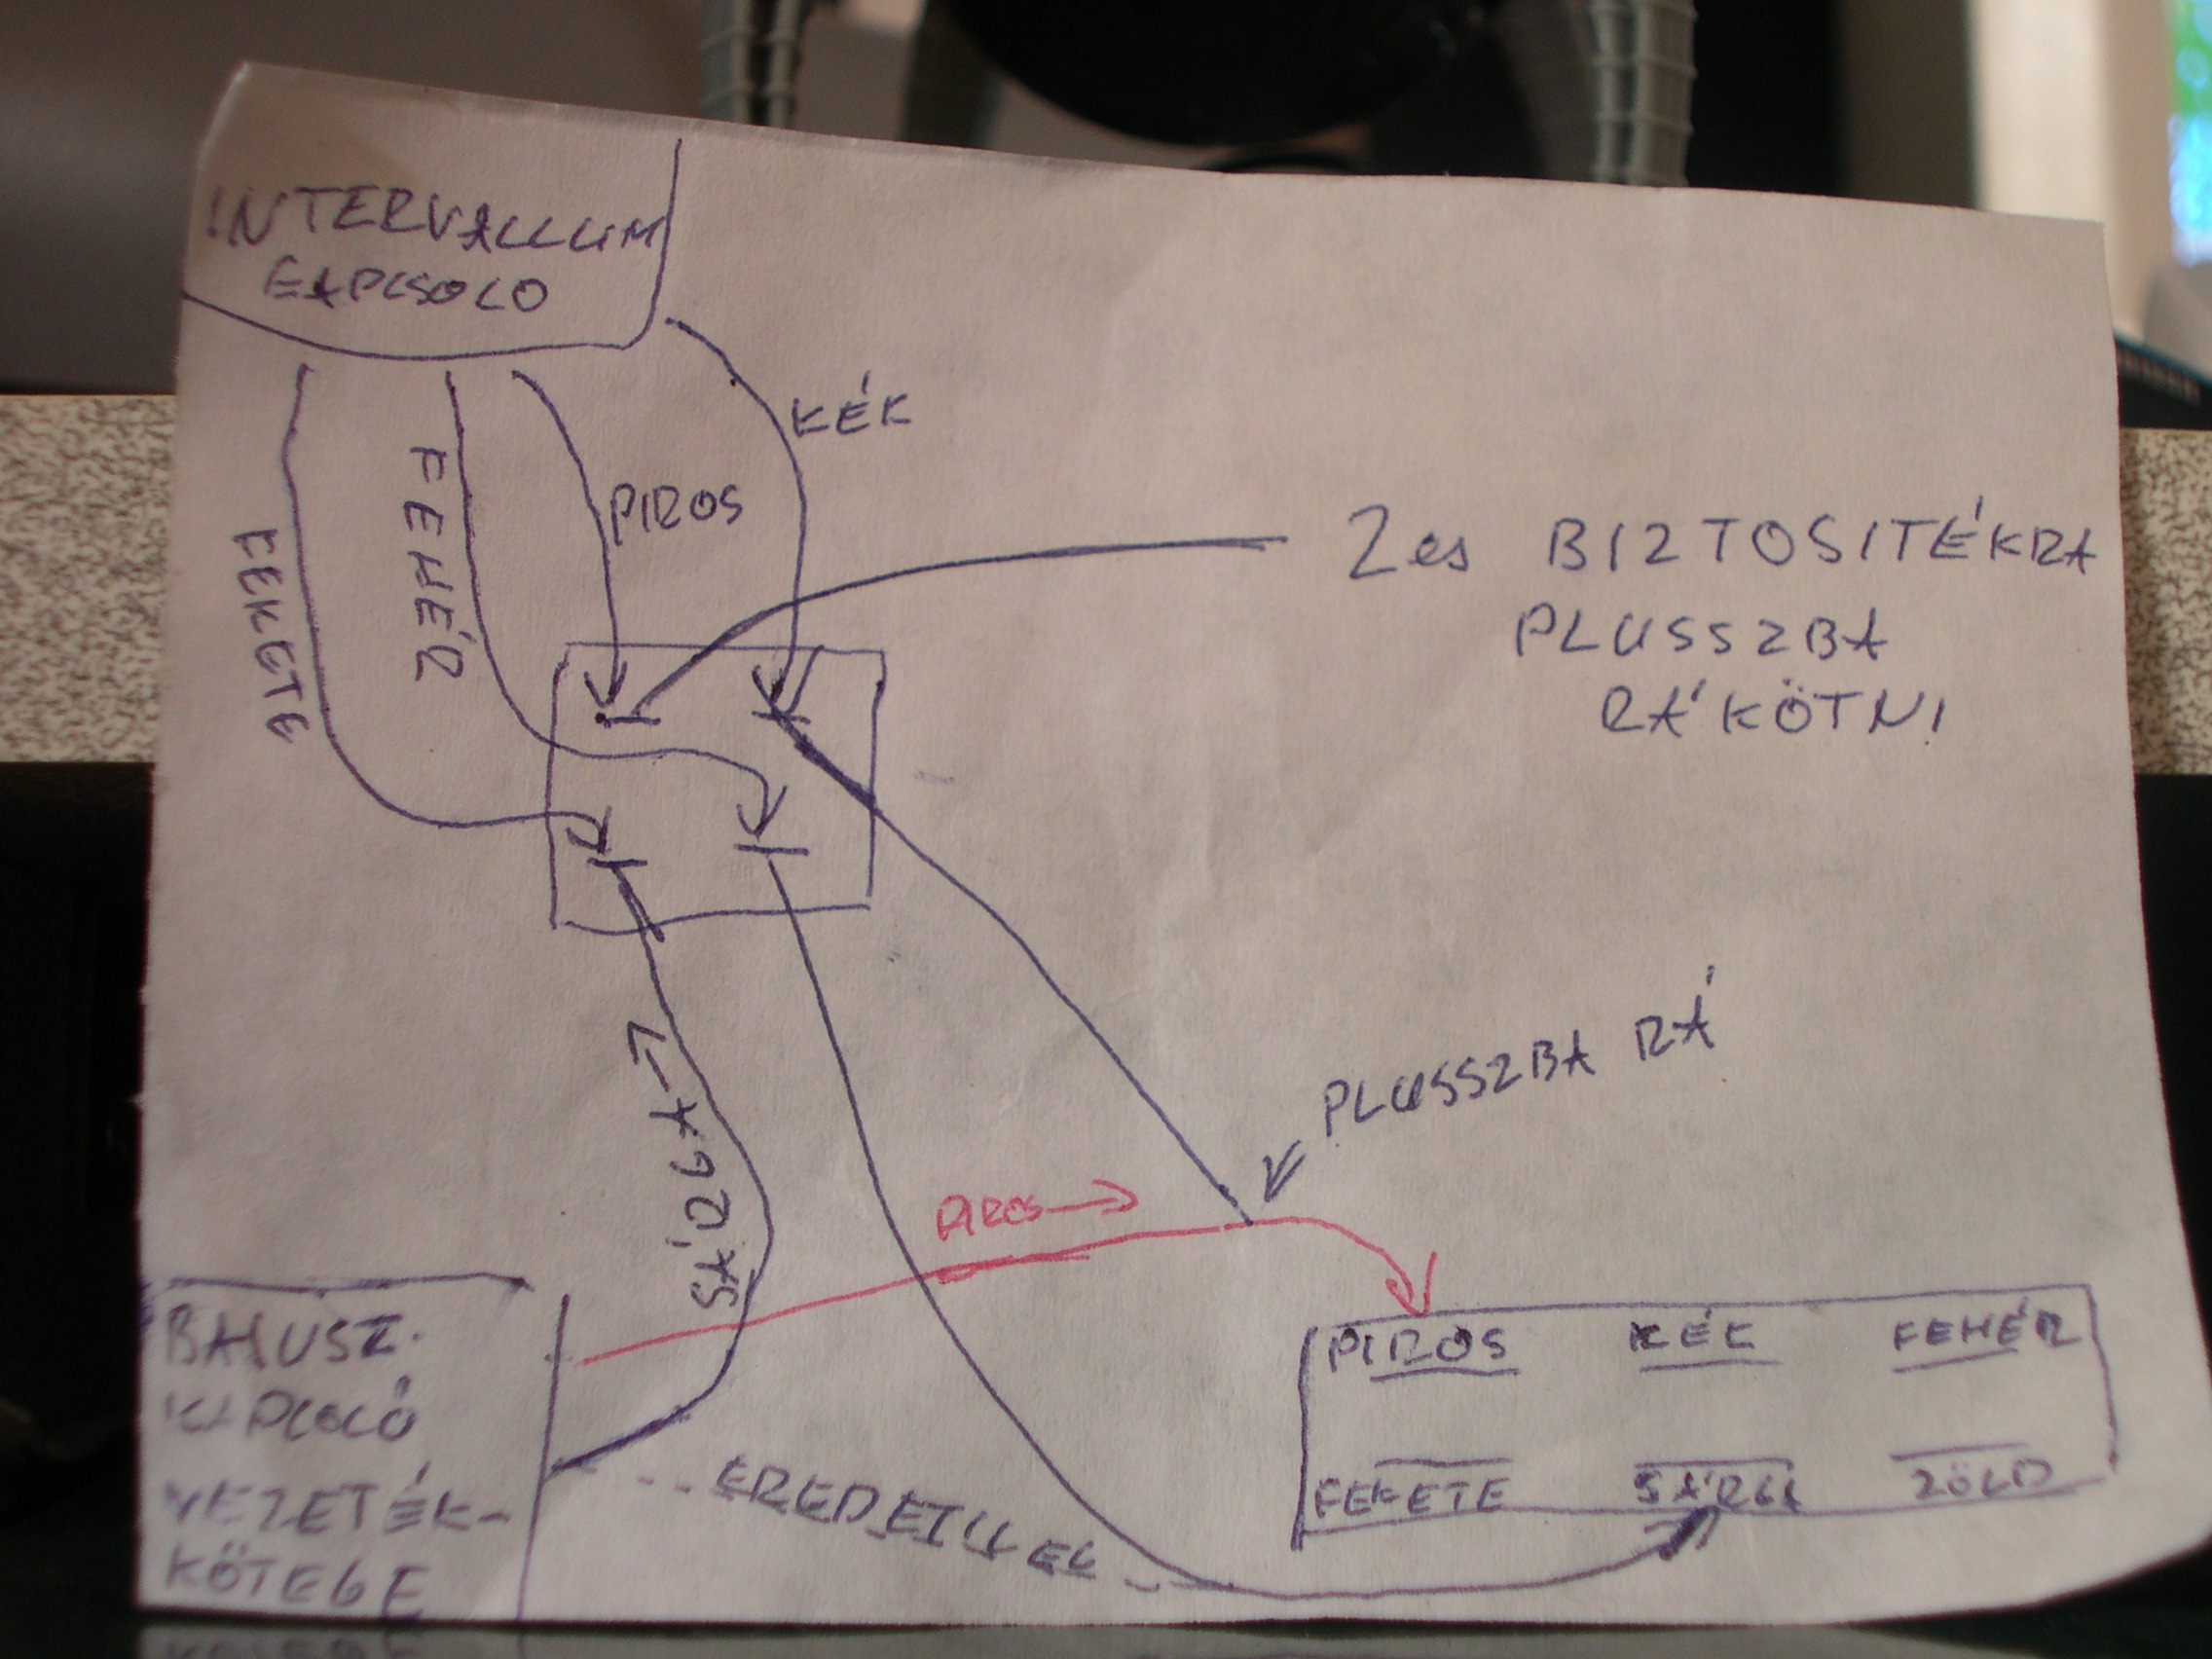 INTERVALLUM
KAPCSOLO
KÉK
PIROS
FEHÉR
FEKETE
2es BIZTOSITÉKRA
PLUSSZBA
RÁKÖTNI
PLUSSZBA RÁ
SÁRGA
PIROS
BALUSZ.
KAPCSOLÓ
VEZETÉK-
KÖTEGE
EREDETILEG
PIROS KÉK FEHÉR
FEKETE SÁRGA ZÖLD